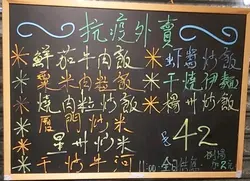 抗疫外賣
鮮茄牛肉飯
粟米肉粒飯
燒肉炒飯
廈門炒米
星州炒米
干炒牛河
蝦醬炒飯
干燒伊麵
楊州炒飯
$42
11:00 全日供應